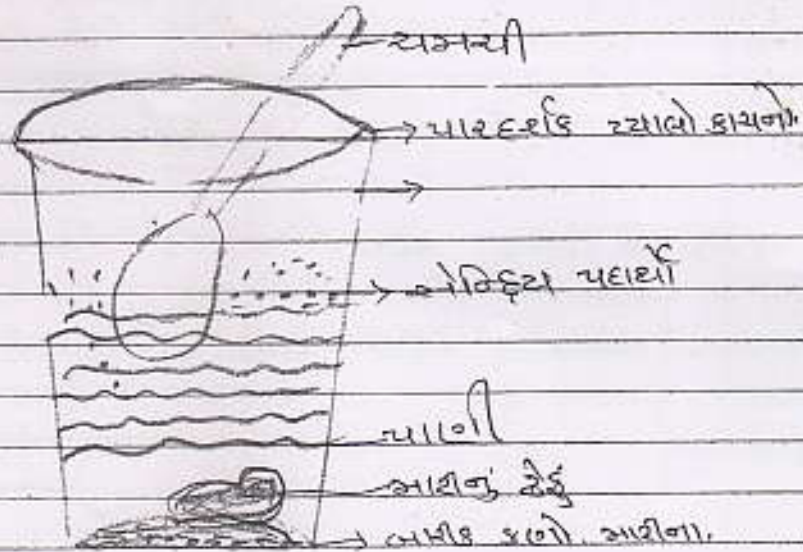 ચમચી
પારદર્શક પ્યાલો કાચનો.
સેન્દ્રિય પદાર્થો
પાણી
માટીનું ઢેફું
બારીક કણો માટીના.